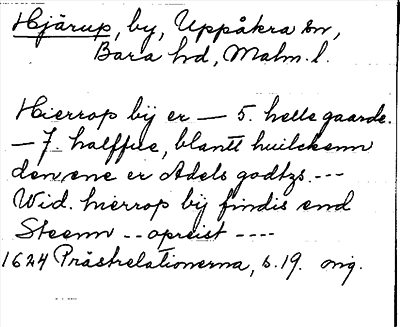 Hjärup, by, Uppåkra sn,
Bara hd, Malm. l.
Hierrop bij er — 5. helle gaarde.
— 7. halffue, blantt huilckenn
den ene er Adels godtzs. ---
Wid. hierrop bij findis end
Steenn -- opreist ----
1624 Prästrelationerna, s. 19. orig.